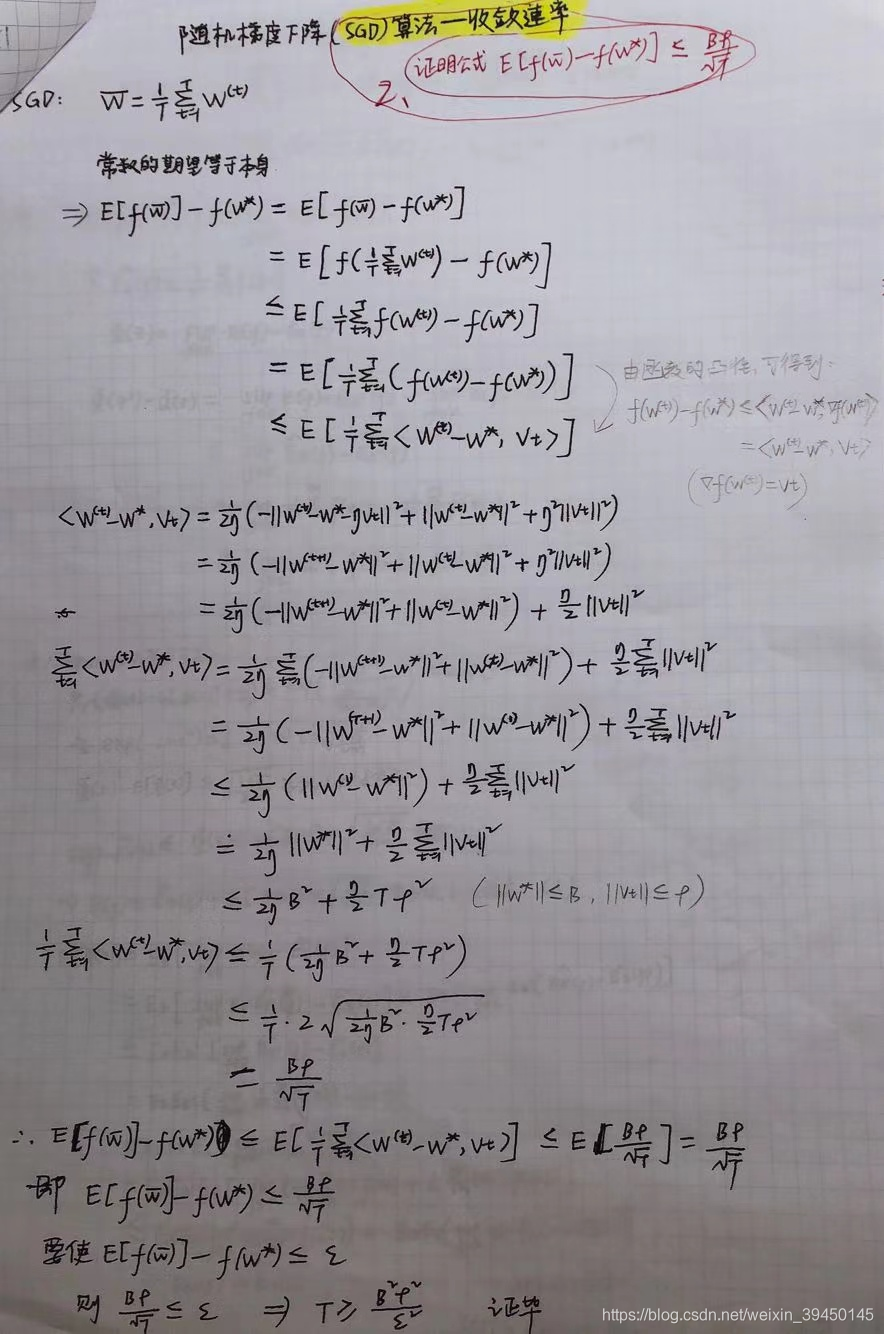 随机梯度下降(SGD)算法—收敛速率
2、证明公式 E[f(w̄)-f(w*)] ≤ Bρ/√T
SGD: w̄ = 1/T Σ_{t=1}^T w^(t)
常数的期望等于本身
⇒ E[f(w̄)]-f(w*) = E[f(w̄)-f(w*)]
= E[f(1/T Σ_{t=1}^T w^(t)) - f(w*)]
≤ E[1/T Σ_{t=1}^T f(w^(t)) - f(w*)]
= E[1/T Σ_{t=1}^T (f(w^(t))-f(w*))]
≤ E[1/T Σ_{t=1}^T <w^(t)-w*, Vt>]
由函数的凸性,可得到:
f(w^(t))-f(w*) ≤ <w^(t)-w*, ∇f(w^(t))>
= <w^(t)-w*, Vt>
(∇f(w^(t))=Vt)
<w^(t)-w*, Vt> = 1/2η (-||w^(t)-w*-ηVt||² + ||w^(t)-w*||² + η²||Vt||²)
= 1/2η (-||w^(t+1)-w*||² + ||w^(t)-w*||² + η²||Vt||²)
= 1/2η (-||w^(t+1)-w*||² + ||w^(t)-w*||²) + η/2 ||Vt||²
Σ_{t=1}^T <w^(t)-w*, Vt> = 1/2η Σ_{t=1}^T (-||w^(t+1)-w*||² + ||w^(t)-w*||²) + η/2 Σ_{t=1}^T ||Vt||²
= 1/2η (-||w^(T+1)-w*||² + ||w^(1)-w*||²) + η/2 Σ_{t=1}^T ||Vt||²
≤ 1/2η (||w^(1)-w*||²) + η/2 Σ_{t=1}^T ||Vt||²
= 1/2η ||w*||² + η/2 Σ_{t=1}^T ||Vt||²
≤ 1/2η B² + η/2 Tρ² (||w*||≤B, ||Vt||≤ρ)
1/T Σ_{t=1}^T <w^(t)-w*, Vt> ≤ 1/T (1/2η B² + η/2 Tρ²)
≤ 1/T · 2 √(1/2η B² · η/2 Tρ²)
= Bρ/√T
∴ E[f(w̄)]-f(w*) ≤ E[1/T Σ_{t=1}^T <w^(t)-w*, Vt>] ≤ E[Bρ/√T] = Bρ/√T
即 E[f(w̄)]-f(w*) ≤ Bρ/√T
要使 E[f(w̄)]-f(w*) ≤ ε
则 Bρ/√T ≤ ε ⇒ T ≥ B²ρ²/ε² 证毕
https://blog.csdn.net/weixin_39450145